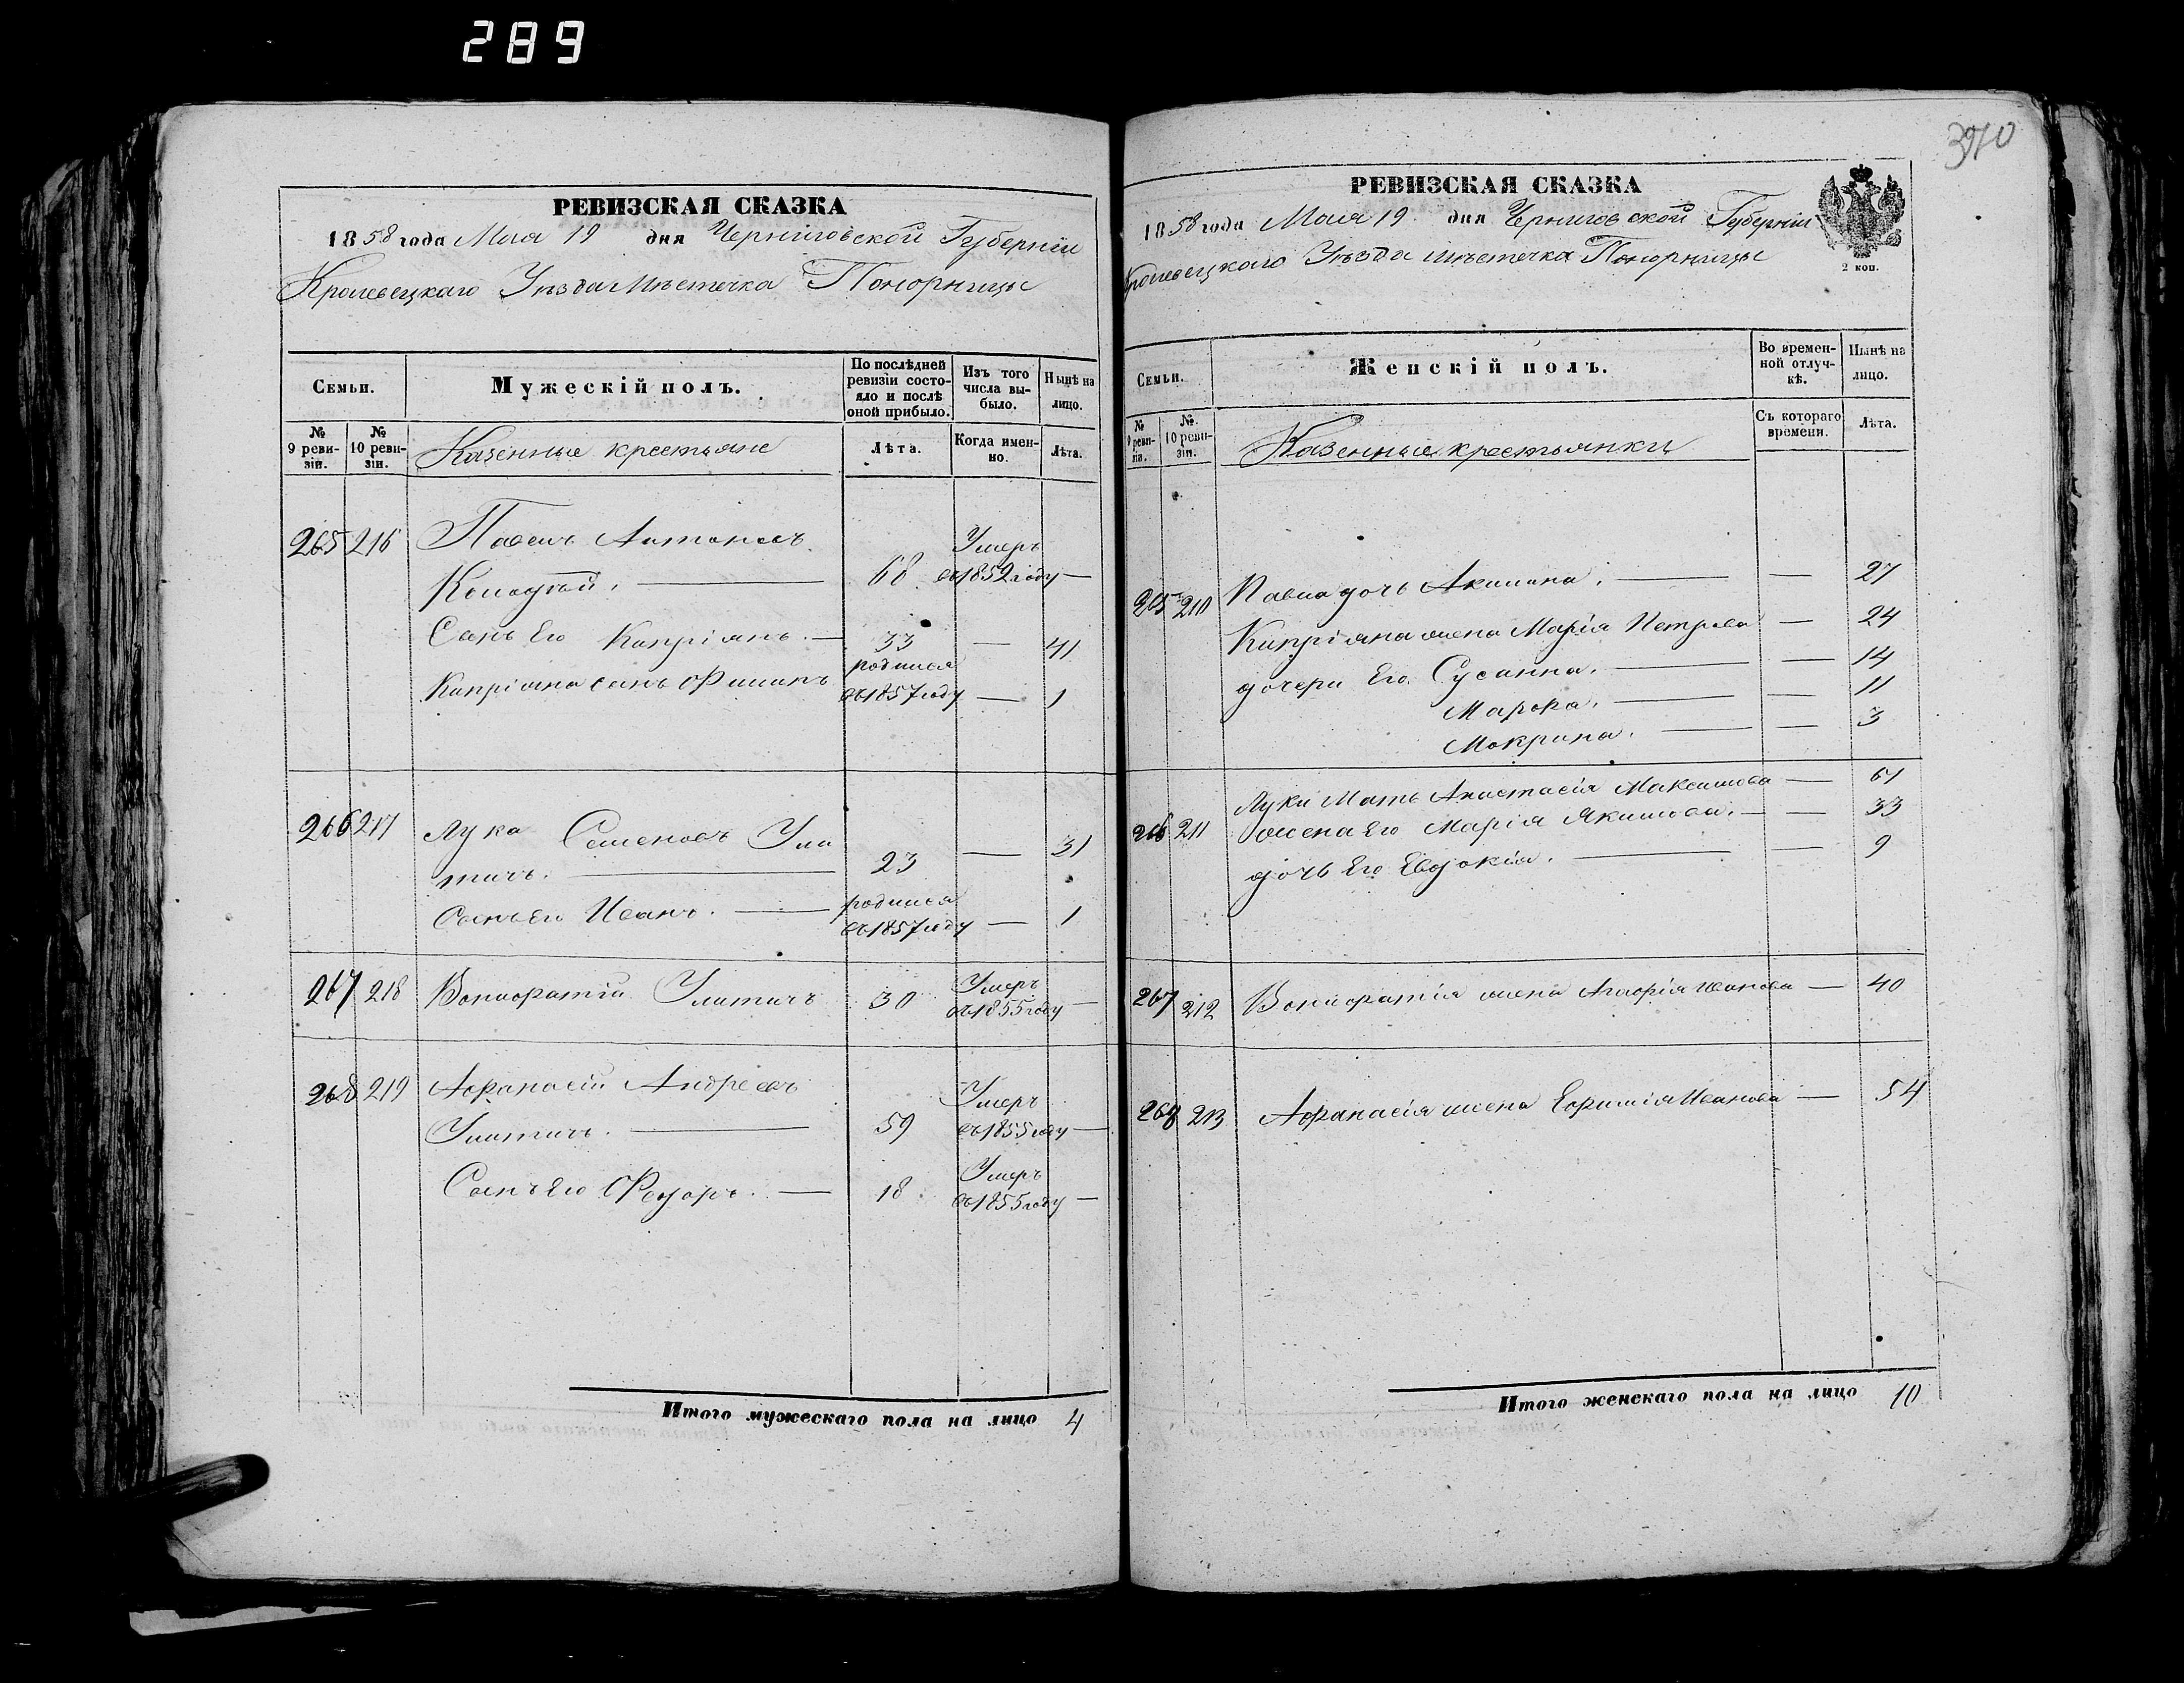 289
РЕВИЗСКАЯ СКАЗКА
1858 года Мая 19 дня Черниговской Губерніи
Кролевецкаго Уѣзда Мѣстечка Понорницы
Семьи.
Мужескій полъ.
По послѣдней ревизіи состояло и послѣ оной прибыло.
Изъ того числа выбыло.
Нынѣ на лицо.
№ 9 ревизіи.
№ 10 ревизіи.
Казенные крестьяне
Лѣта.
Когда именно.
Лѣта.
265 216 Павелъ Антоновъ
68 Умеръ въ 1852 году —
Сынъ его Кипріянъ. — 33 — 41
Кипріяна сынъ Филипъ родился въ 1857 году — 1
266 217 Лука Семеновъ Ули
тичъ. — 23 — 31
Сынъ его Иванъ. — родился въ 1857 году — 1
267 218 Вонифатій Улитичъ 30 Умеръ въ 1855 году —
268 219 Афанасій Андреевъ
Улитичъ. — 59 Умеръ въ 1855 году —
Сынъ его Федоръ. — 18 Умеръ въ 1855 году —
Итого мужескаго пола на лицо 4
3910
РЕВИЗСКАЯ СКАЗКА
1858 года Мая 19 дня Черниговской Губерніи
Кролевецкаго Уѣзда мѣстечка Понорницы
2 коп.
Семьи.
Женскій полъ.
Во временной отлучкѣ.
Нынѣ на лицо.
№ 9 ревизіи.
№ 10 ревизіи.
Казенные крестьянки
Съ котораго времени.
Лѣта.
265 210 Павла дочь Акилина. — — 27
Кипріяна жена Марія Петрова — 24
дочери Его Сусанна. — — 14
Марфа. — — 11
Мокрина. — — 3
266 211 Луки Мать Анастасія Максимова — 61
жена Его Марія Якимова. — — 33
дочь Его Евдокія. — — 9
267 212 Вонифатія жена Агафія Иванова — 40
268 213 Афанасія жена Ефимія Иванова — 54
Итого женскаго пола на лицо 10